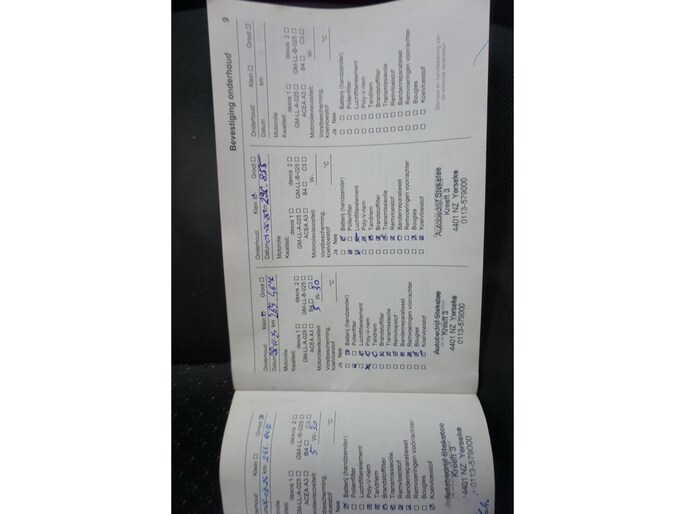 Bevestiging onderhoud
9
Onderhoud: Klein Groot
Datum km
Motorolie
Kwaliteit: dexos 1 dexos 2
GM-LL-A-025 GM-LL-B-025
ACEA A3 B4 C3
Motorolieviscositeit: W-
Vorstbescherming,
koelvloeistof °C
Ja Nee
Batterij (handzender)
Pollenfilter
Luchtfilterelement
Poly-V-riem
Tandriem
Brandstoffilter
Transmissieolie
Remvloeistof
Bandenreparatieset
Remvoeringen voor/achter
Bougies
Koelvloeistof
Onderhoud: Klein Groot
Datum km
Motorolie
Kwaliteit: dexos 1 dexos 2
GM-LL-A-025 GM-LL-B-025
ACEA A3 B4 C3
Motorolieviscositeit: W-
Vorstbescherming,
koelvloeistof °C
Ja Nee
Batterij (handzender)
Pollenfilter
Luchtfilterelement
Poly-V-riem
Tandriem
Brandstoffilter
Transmissieolie
Remvloeistof
Bandenreparatieset
Remvoeringen voor/achter
Bougies
Koelvloeistof
Autobedrijf Stoketee
Kreeft 3
4401 NZ Yerseke
0113-579000
Onderhoud: Klein Groot
Datum km 269 464
Motorolie
Kwaliteit: dexos 1 dexos 2
GM-LL-A-025 GM-LL-B-025
ACEA A3 B4 C3
Motorolieviscositeit: 5 W- 30
Vorstbescherming,
koelvloeistof °C
Ja Nee
Batterij (handzender)
Pollenfilter
Luchtfilterelement
Poly-V-riem
Tandriem
Brandstoffilter
Transmissieolie
Remvloeistof
Bandenreparatieset
Remvoeringen voor/achter
Bougies
Koelvloeistof
Autobedrijf Stoketee
Kreeft 3
4401 NZ Yerseke
0113-579000
Klein Groot
km
dexos 1 dexos 2
GM-LL-A-025 GM-LL-B-025
ACEA A3 B4 C3
Motorolieviscositeit: 5 W- 30
Vorstbescherming,
koelvloeistof °C
Ja Nee
Batterij (handzender)
Pollenfilter
Luchtfilterelement
Poly-V-riem
Tandriem
Brandstoffilter
Transmissieolie
Remvloeistof
Bandenreparatieset
Remvoeringen voor/achter
Bougies
Koelvloeistof
Autobedrijf Stoketee
Kreeft 3
4401 NZ Yerseke
0113-579000